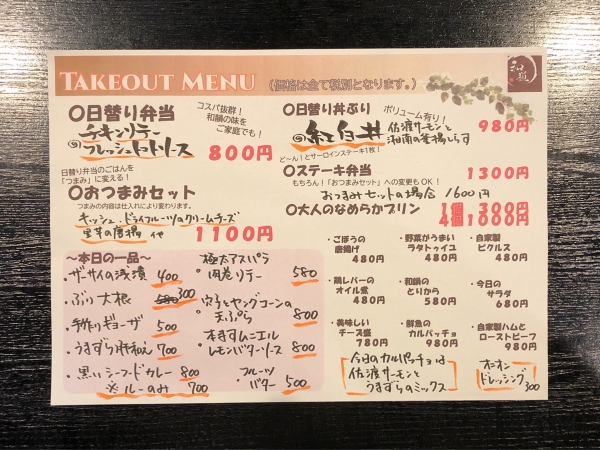 TAKEOUT MENU （価格は全て税別となります。）
和韻
〇日替り弁当
コスパ抜群！
和韻の味を
ご家庭でも！
チキンソテー
フレッシュトマトソース
800円
日替り弁当のごはんを
「つまみ」に変える！
〇おつまみセット
つまみの内容は仕入れにより変わります。
キッシュ・ドライフルーツのクリームチーズ
里芋の唐揚 他
1100円
〇日替り丼ぶり
ボリューム有り！
紅白丼
佐渡サーモンと
湘南の釜揚しらす
980円
ど〜ん！とサーロインステーキ1枚！
〇ステーキ弁当
1300円
もちろん！「おつまみセット」への変更もOK！
おつまみセットの場合 1600円
〇大人のなめらかプリン
1個 300円
4個1000円
〜本日の一品〜
・ザーサイの浅漬 400
・ぶり大根 580 300
・手作りギョーザ 500
・うまづら肝和え 700
・黒いシーフードカレー 800
※ルーのみ 700
・極太アスパラ
肉巻ソテー 580
・穴子とヤングコーンの
天ぷら 800
・本きすムニエル
レモンバターソース 800
・フルーツ
バター 500
・ごぼうの
唐揚げ
480円
・野菜がうまい
ラタトゥイユ
480円
・自家製
ピクルス
480円
・鶏レバーの
オイル煮
480円
・和韻の
とりから
580円
・今日の
サラダ
680円
・美味しい
チーズ盛
780円
・鮮魚の
カルパッチョ
980円
・自家製ハムと
ローストビーフ
980円
今日のカルパッチョは
佐渡サーモンと
うまづらのミックス
オニオン
ドレッシング
300